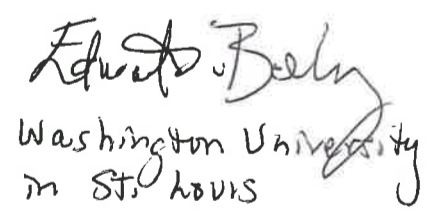 Edward
Washington University
in St. Louis